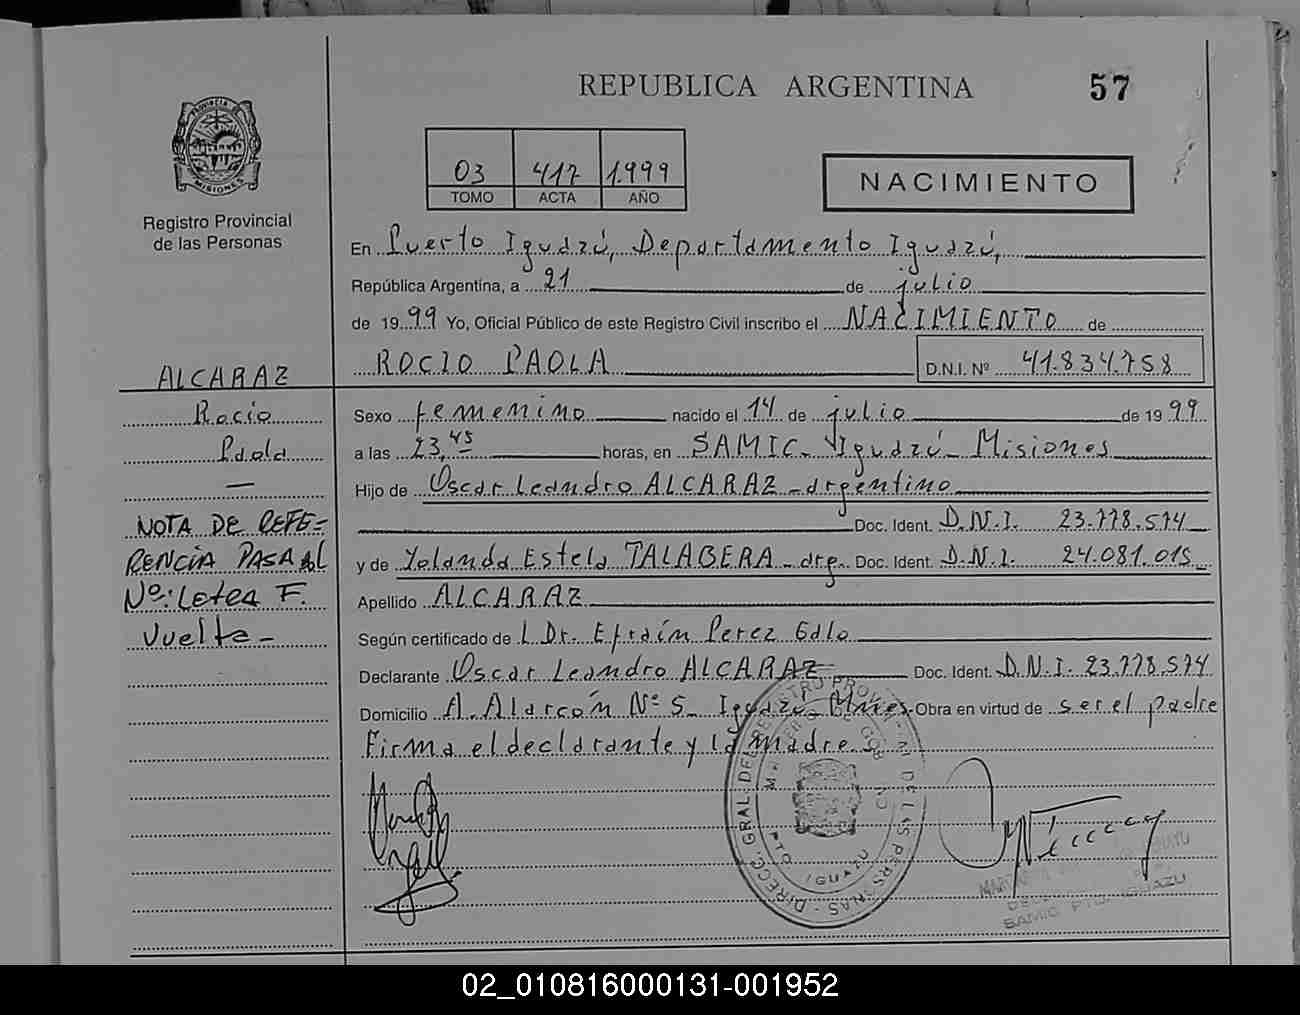 REPUBLICA ARGENTINA
57
PROVINCIA DE
MISIONES
Registro Provincial
de las Personas
03 417 1.999
TOMO ACTA AÑO
NACIMIENTO
En Puerto Iguazú, Departamento Iguazú,
República Argentina, a 21 de julio
de 1999 Yo, Oficial Público de este Registro Civil inscribo el NACIMIENTO de
ROCIO PAOLA D.N.I. Nº 41.834.758
ALCARAZ
Rocio
Paola
—
NOTA DE REFE-
RENCIA PASA al
Nº: Letra F.
Vuelta -
Sexo femenino nacido el 14 de julio de 1999
a las 23,45 horas, en SAMIC - Iguazú - Misiones
Hijo de Oscar Leandro ALCARAZ - argentino
Doc. Ident. D.N.I. 23.778.574
y de Yolanda Estela TALABERA - arg. Doc. Ident. D.N.I. 24.081.015
Apellido ALCARAZ
Según certificado de L Dr. Efraín Perez Galo
Declarante Oscar Leandro ALCARAZ Doc. Ident. D.N.I. 23.778.574
Domicilio A. Alarcón Nº 5 - Iguazú - Mnes. Obra en virtud de ser el padre
Firma el declarante y la madre
DIRECC. GRAL. DEL REGISTRO PROVINCIAL DE LAS PERSONAS
PTO IGUAZU
SAMIC PTO. IGUAZU
02_010816000131-001952